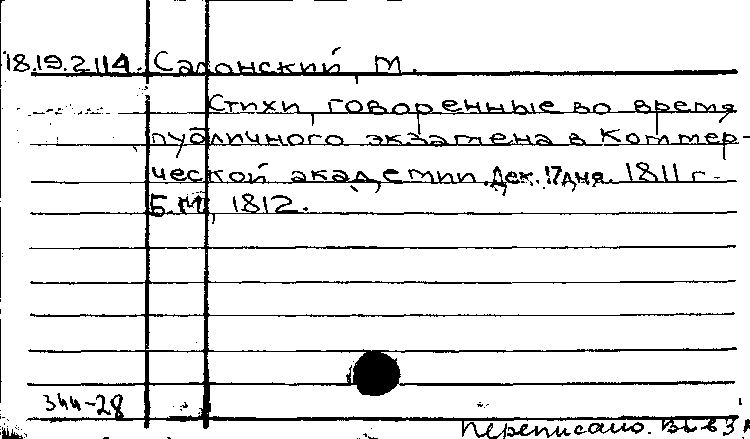 18.19.2.114. Салонский, М.
Стихи, говоренные во время
публичного экзамена в Коммер-
ческой академии. Дек. 17 дня. 1811 г.
Б.М., 1812.
344-28
Переписано.